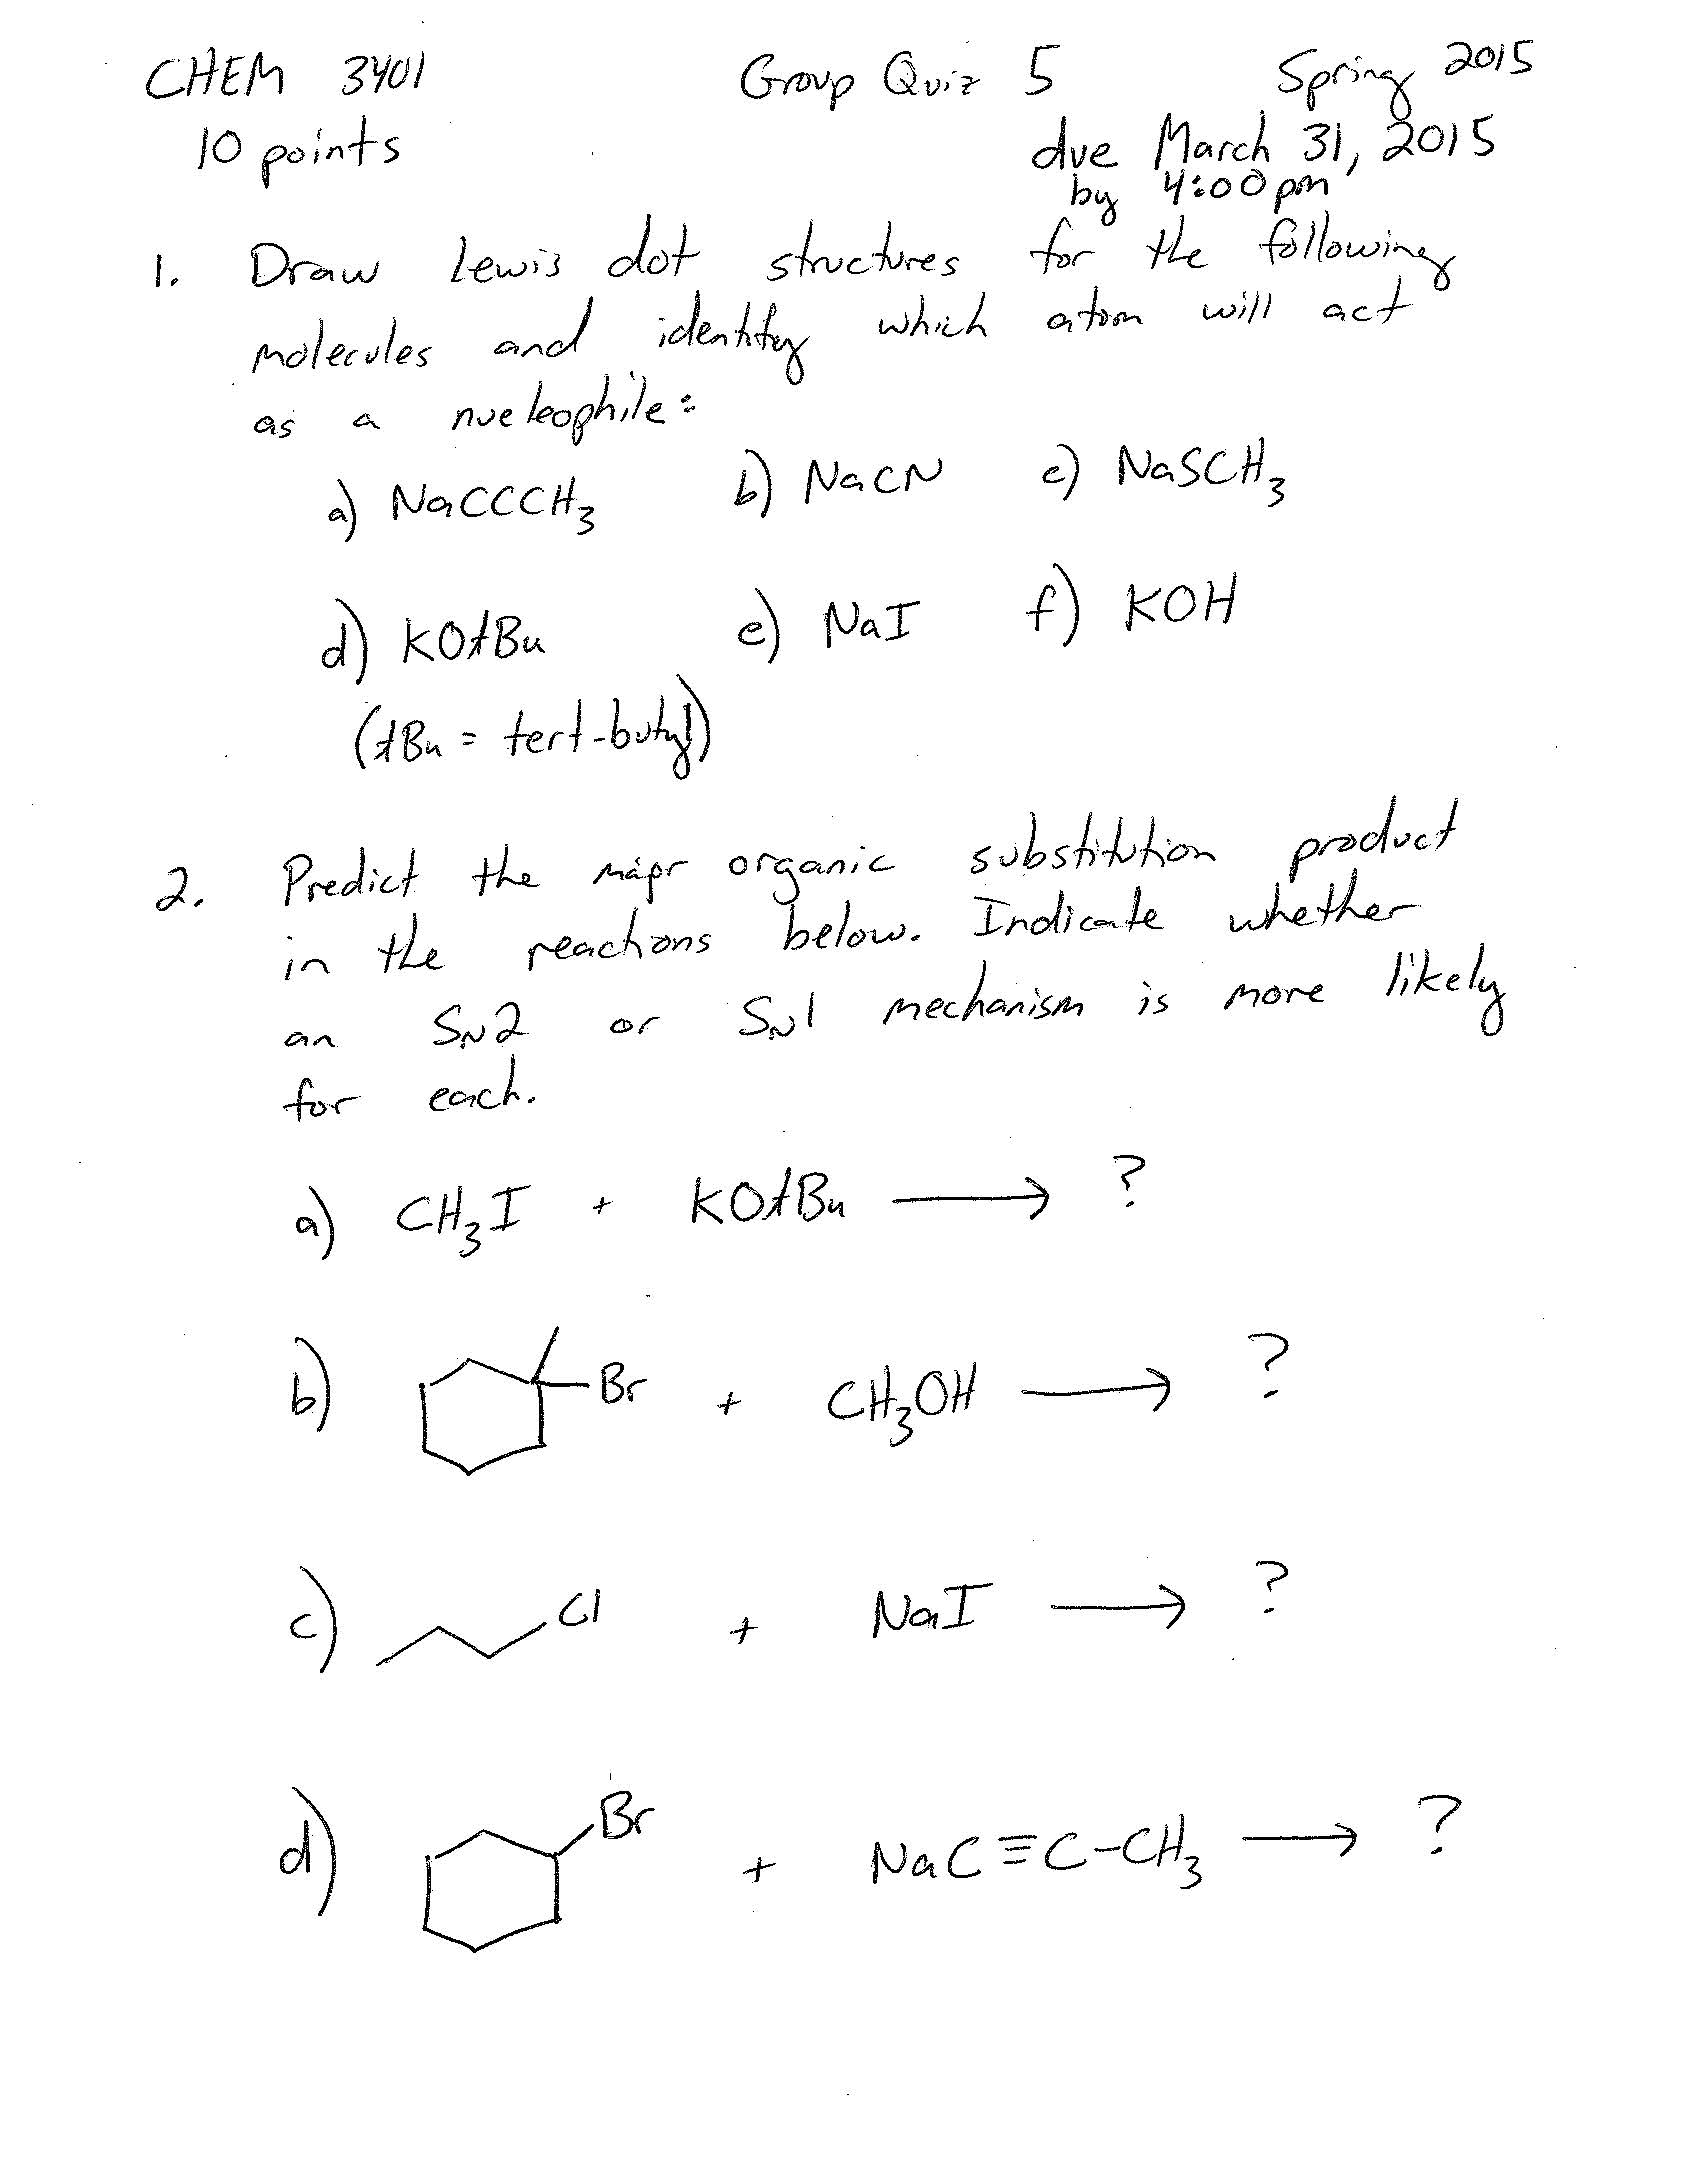 CHEM 3401 Group Quiz 5 Spring 2015
10 points due March 31, 2015
by 4:00pm
1. Draw Lewis dot structures for the following
molecules and identify which atom will act
as a nucleophile:
a) NaCCCH3 b) NaCN c) NaSCH3
d) KOtBu e) NaI f) KOH
(tBu = tert-butyl)
2. Predict the major organic substitution product
in the reactions below. Indicate whether
an SN2 or SN1 mechanism is more likely
for each.
a) CH3I + KOtBu ⟶ ?
b) Br + CH3OH ⟶ ?
c) Cl + NaI ⟶ ?
d) Br + NaC≡C-CH3 ⟶ ?